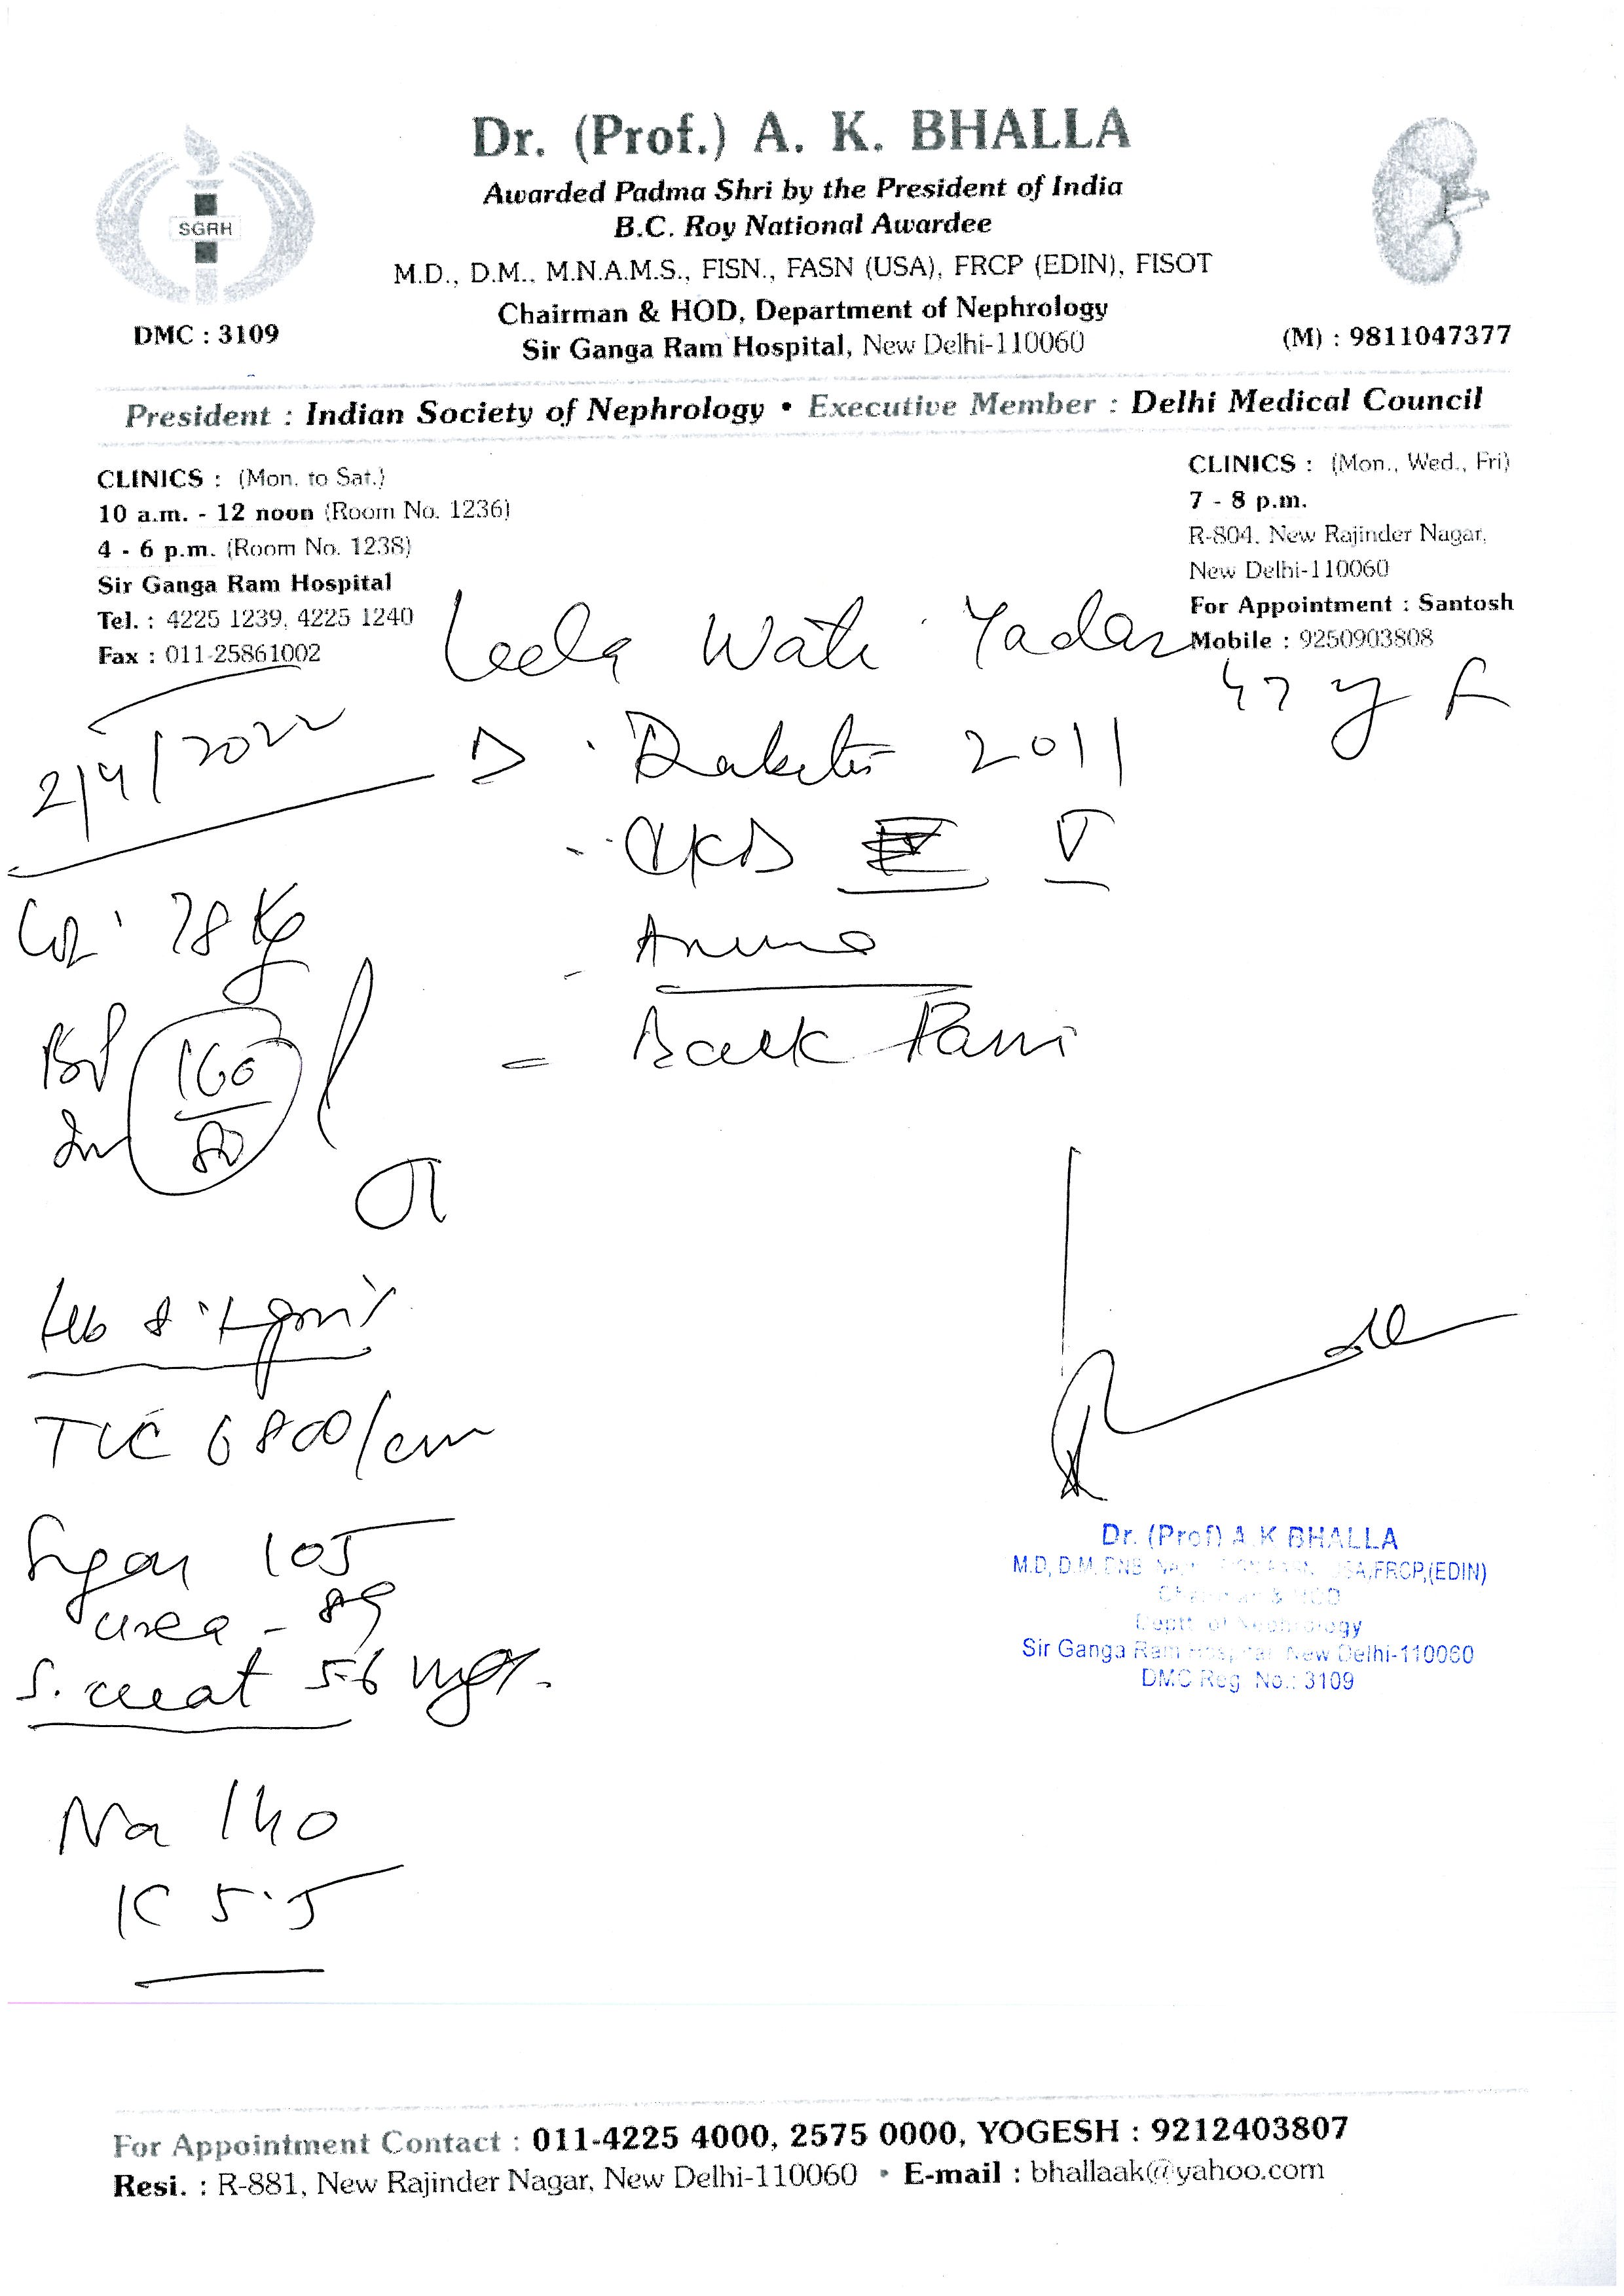 Dr. (Prof.) A. K. BHALLA
Awarded Padma Shri by the President of India
B.C. Roy National Awardee
M.D., D.M., M.N.A.M.S., FISN., FASN (USA), FRCP (EDIN), FISOT
Chairman & HOD, Department of Nephrology
Sir Ganga Ram Hospital, New Delhi-110060
SGRH
DMC : 3109
(M) : 9811047377
President : Indian Society of Nephrology • Executive Member : Delhi Medical Council
CLINICS : (Mon. to Sat.)
10 a.m. - 12 noon (Room No. 1236)
4 - 6 p.m. (Room No. 1238)
Sir Ganga Ram Hospital
Tel. : 4225 1239, 4225 1240
Fax : 011-25861002
CLINICS : (Mon., Wed., Fri)
7 - 8 p.m.
R-804, New Rajinder Nagar,
New Delhi-110060
For Appointment : Santosh
Mobile : 9250903808
Leela Wati Yadav
47 y F
2/4/2022
Diabetes 2011
- CKD V
- Anemia
= Back Pain
78 Kg
BP 160/80
Hb
TLC 6800/cm
Sugar 105
urea - 89
S. creat 5.6 mg%.
Na 140
K 5.5
Dr. (Prof) A K BHALLA
M.D, D.M, DNB USA,FRCP,(EDIN)
Chairman & HOD
Deptt. of Nephrology
Sir Ganga Ram Hospital New Delhi-110060
DMC Reg. No.: 3109
For Appointment Contact : 011-4225 4000, 2575 0000, YOGESH : 9212403807
Resi. : R-881, New Rajinder Nagar, New Delhi-110060 • E-mail : bhallaak@yahoo.com